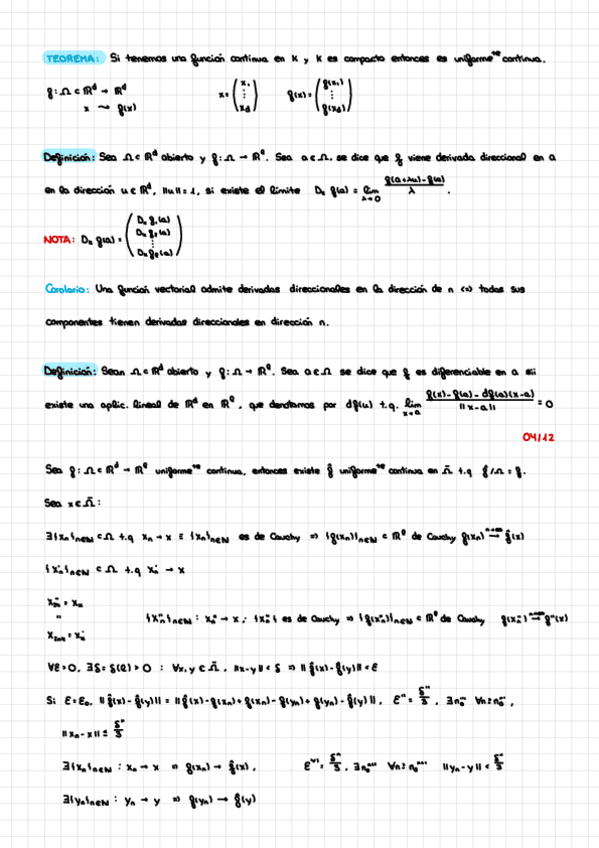 TEOREMA: Si tenemos una función continua en K y K es compacto entonces es uniforme^te continua.
f: Ω ⊂ ℝ^d → ℝ^d    x = (x₁ ⋮ x_d)    f(x) = (f(x₁) ⋮ f(x_d))
x ⇝ f(x)
Definición: Sea Ω ⊂ ℝ^d abierto y f: Ω → ℝ^e. Sea a ∈ Ω, se dice que f viene derivada direccional en a
en la dirección u ∈ ℝ^d, ||u|| = 1, si existe el límite D_u f(a) = lim_{λ→0} (f(a+λu) - f(a))/λ.
NOTA: D_u f(a) = (D_u f₁(a) D_u f₂(a) ⋮ D_u f_e(a))
Corolario: Una función vectorial admite derivadas direccionales en la dirección de n <=> todas sus
componentes tienen derivadas direccionales en dirección n.
Definición: Sean Ω ⊂ ℝ^d abierto y f: Ω → ℝ^e. Sea a ∈ Ω se dice que f es diferenciable en a si
existe una aplic. lineal de ℝ^d en ℝ^e, que denotamos por df(a) t.q. lim_{x→a} (f(x) - f(a) - df(a)(x-a))/||x-a|| = 0
04/12
Sea f: Ω ⊂ ℝ^d → ℝ^e uniforme^te continua, entonces existe f̂ uniforme^te continua en Ω̄ t.q f̂/Ω = f.
Sea x ∈ Ω̄:
∃{xₙ}ₙ∈ℕ ⊂ Ω t.q xₙ → x {xₙ}ₙ∈ℕ es de Cauchy ⇒ {f(xₙ)}ₙ∈ℕ ⊂ ℝ^e de Cauchy f(xₙ) → f̂(x)
{x'ₙ}ₙ∈ℕ ⊂ Ω t.q x'ₙ → x
x''₂ₙ = xₙ
{x''ₙ}ₙ∈ℕ : x''ₙ → x; {x''ₙ} es de Cauchy ⇒ {f(x''ₙ)}ₙ∈ℕ ⊂ ℝ^e de Cauchy f(x''ₙ) → f''(x)
x''₂ₙ₊₁ = x'ₙ
∀ε > 0, ∃δ = δ(ε) > 0 : ∀x,y ⊂ Ω̄, ||x-y|| < δ ⇒ ||f̂(x) - f̂(y)|| < ε
Si ε = ε₀, ||f̂(x) - f̂(y)|| = ||f̂(x) - f(xₙ) + f(xₙ) - f(yₙ) + f(yₙ) - f̂(y)||, ε'' = δ''/3, ∃n₀''' ∀n ≥ n₀''',
||xₙ - x|| ≤ δ''/3
∃{xₙ}ₙ∈ℕ : xₙ → x ⇒ f(xₙ) → f̂(x), δ''/3, ∀n ≥ ||yₙ - y|| < δ''/3
∃{yₙ}ₙ∈ℕ : yₙ → y ⇒ f(yₙ) → f(y)